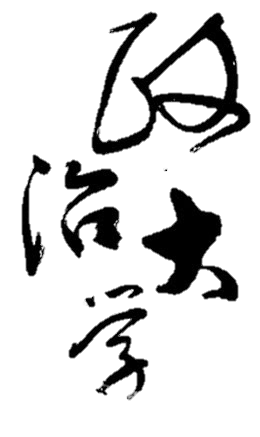 政治大学